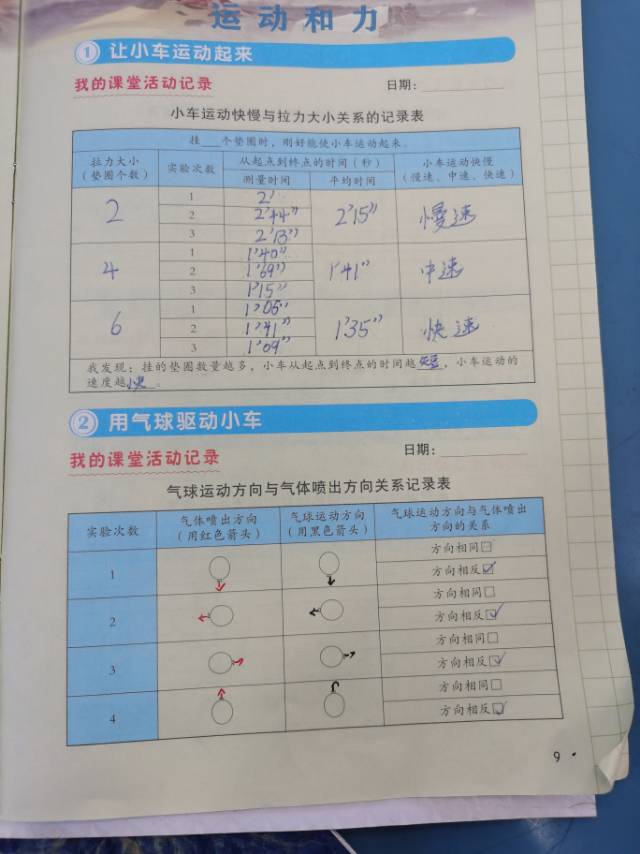 运动和力
① 让小车运动起来
我的课堂活动记录 日期：
小车运动快慢与拉力大小关系的记录表
挂___个垫圈时，刚好能使小车运动起来。
拉力大小（垫圈个数） 实验次数 从起点到终点的时间（秒） 小车运动快慢（慢速、中速、快速）
测量时间 平均时间
2 1 2' 2'15" 慢速
2 2'44"
3 2'13"
4 1 1'40" 1'41" 中速
2 1'69"
3 1'15"
6 1 1'05" 1'35" 快速
2 1'41"
3 1'09"
我发现：挂的垫圈数量越多，小车从起点到终点的时间越短，小车运动的
速度越快。
② 用气球驱动小车
我的课堂活动记录 日期：
气球运动方向与气体喷出方向关系记录表
实验次数 气体喷出方向（用红色箭头） 气球运动方向（用黑色箭头） 气球运动方向与气体喷出方向的关系
1 方向相同□
方向相反☑
2 方向相同□
方向相反☑
3 方向相同□
方向相反☑
4 方向相同□
方向相反☑
9